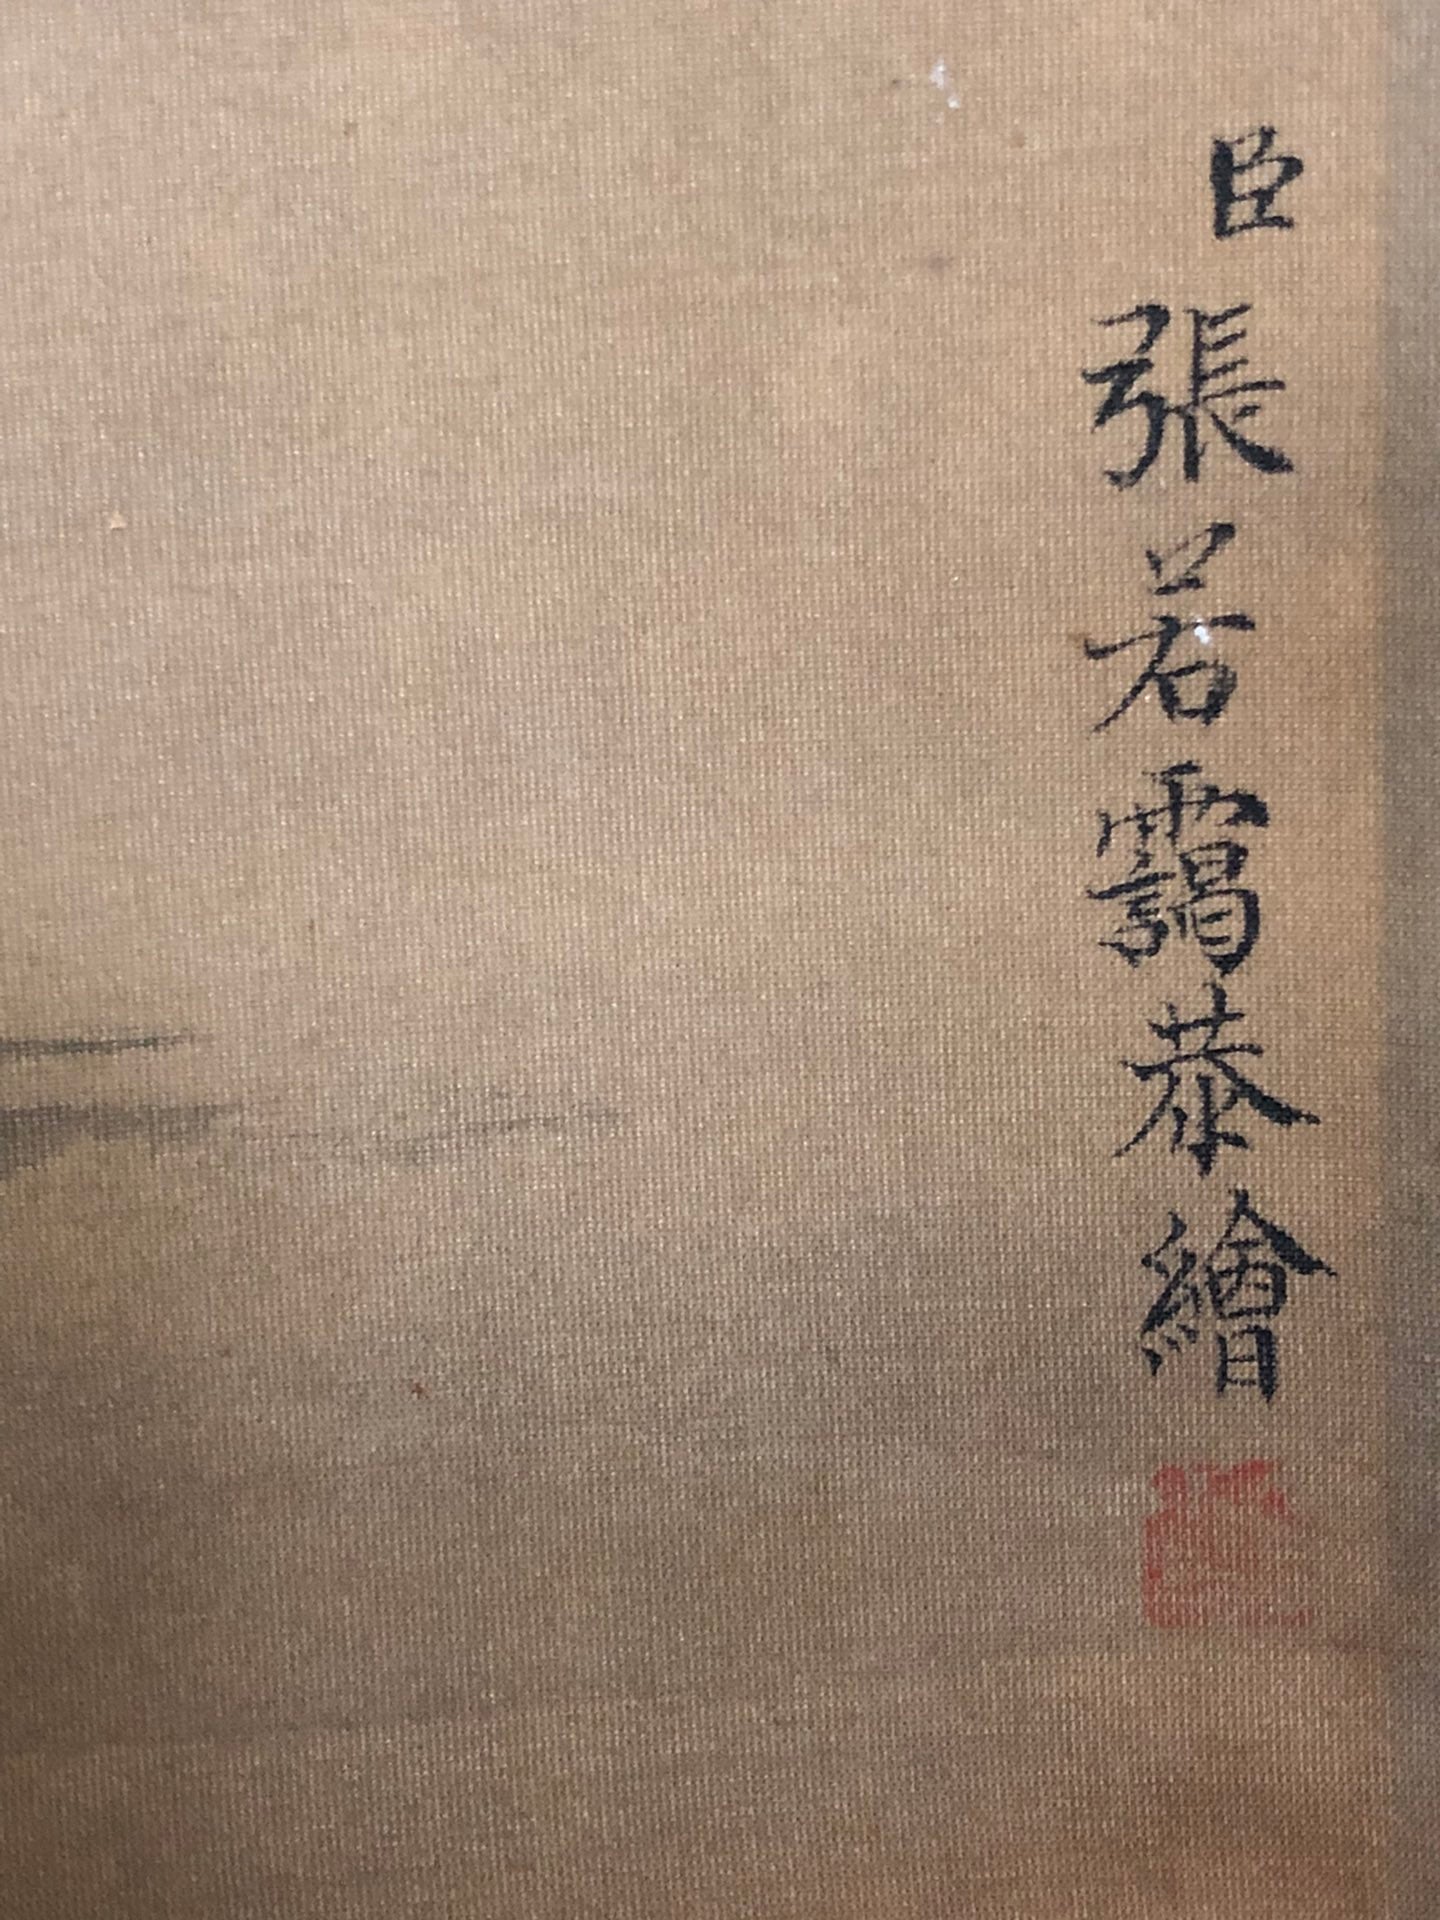 臣張若靄恭繪